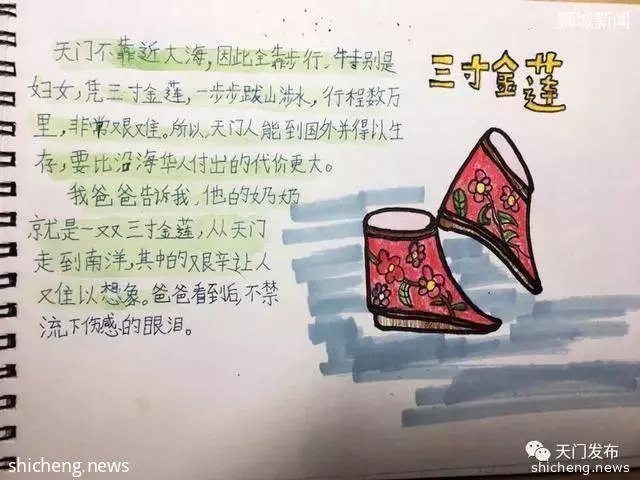 狮城新闻
三寸金莲
天门不靠近大海，因此全靠步行、特别是
妇女，凭三寸金莲，一步步跋山涉水，行程数万
里，非常艰难。所以，天门人能到国外并得以生
存，要比沿海华人付出的代价更大。
我爸爸告诉我，他的奶奶
就是一双三寸金莲，从天门
走到南洋，其中的艰辛让人
难以想象。爸爸看到后，不禁
流下伤感的眼泪。
天门发布
shicheng.news
shicheng.news